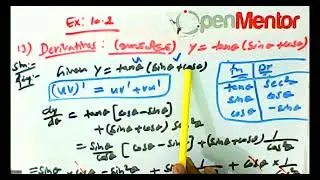 Ex: 10.2
OpenMentor
13) Derivatives: y = tanθ (sinθ + cosθ)
Given y = tanθ (sinθ + cosθ)
(uv)' = uv' + vu'
fn Dr
tanθ sec²θ
sinθ cosθ
cosθ -sinθ
dy/dθ = tanθ [cosθ - sinθ]
+ (sinθ + cosθ) sec²θ
= sinθ/cosθ [cosθ - sinθ] + (sinθ + cosθ) 1/cos²θ